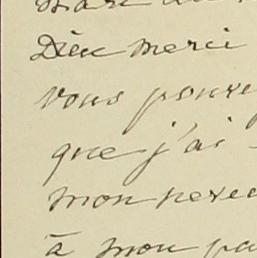 Dieu merci
vous pouve
que j'ai
mon
à mon pa